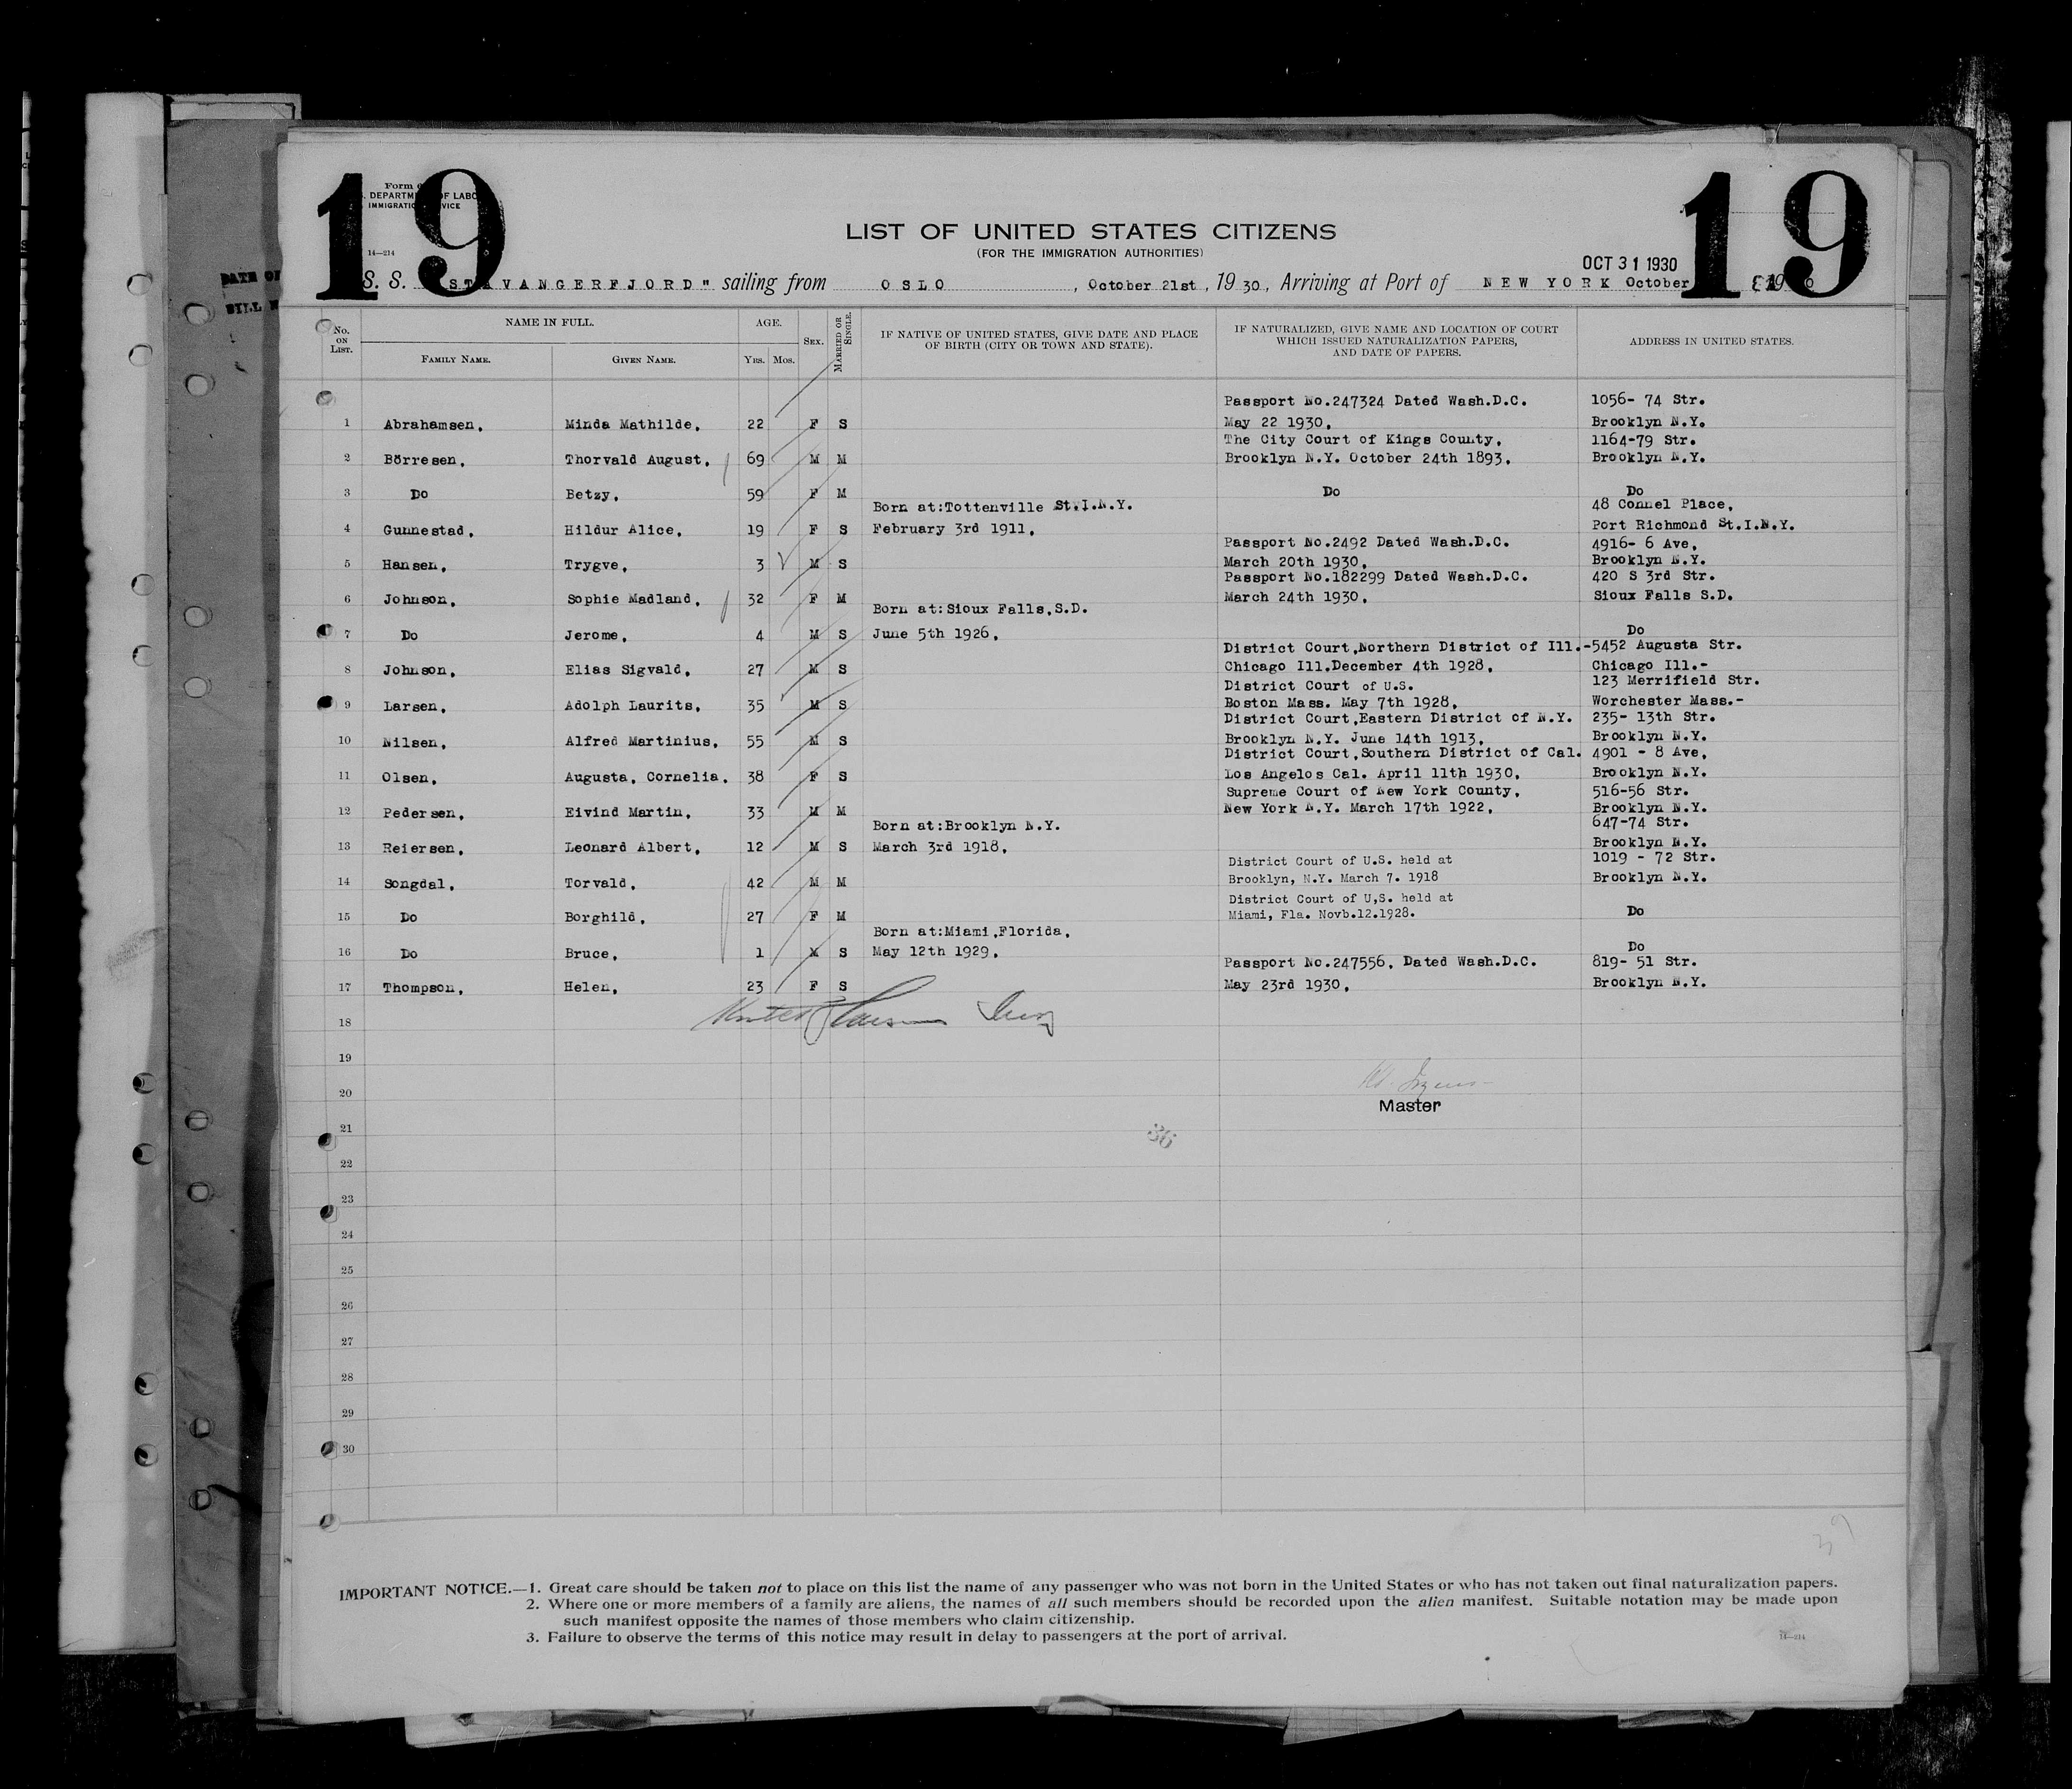 19 19
Form
DEPARTM OF LABO
IMMIGRATIO VICE
14—214
LIST OF UNITED STATES CITIZENS
(FOR THE IMMIGRATION AUTHORITIES)
OCT 31 1930
S. S. "STAVANGERFJORD" sailing from OSLO, October 21st, 1930, Arriving at Port of NEW YORK October
DATE OF
BILL N
No. ON LIST.
NAME IN FULL.
FAMILY NAME. GIVEN NAME.
AGE.
YRS. MOS.
SEX.
MARRIED OR SINGLE.
IF NATIVE OF UNITED STATES, GIVE DATE AND PLACE
OF BIRTH (CITY OR TOWN AND STATE).
IF NATURALIZED, GIVE NAME AND LOCATION OF COURT
WHICH ISSUED NATURALIZATION PAPERS,
AND DATE OF PAPERS.
ADDRESS IN UNITED STATES.
Passport No.247324 Dated Wash.D.C. 1056- 74 Str.
1 Abrahamsen, Minda Mathilde, 22 F S May 22 1930, Brooklyn N.Y.
The City Court of Kings County, 1164-79 Str.
2 Börresen, Thorvald August, 69 M M Brooklyn N.Y. October 24th 1893, Brooklyn N.Y.
3 Do Betzy, 59 F M Do Do
Born at:Tottenville St.I.N.Y. 48 Connel Place,
4 Gunnestad, Hildur Alice, 19 F S February 3rd 1911, Port Richmond St.I.N.Y.
Passport No.2492 Dated Wash.D.C. 4916- 6 Ave,
5 Hansen, Trygve, 3 M S March 20th 1930, Brooklyn N.Y.
Passport No.182299 Dated Wash.D.C. 420 S 3rd Str.
6 Johnson, Sophie Madland, 32 F M March 24th 1930, Sioux Falls S.D.
Born at:Sioux Falls,S.D.
7 Do Jerome, 4 M S June 5th 1926, Do
District Court,Northern District of Ill.-5452 Augusta Str.
8 Johnson, Elias Sigvald, 27 M S Chicago Ill.December 4th 1928, Chicago Ill.-
District Court of U.S. 123 Merrifield Str.
9 Larsen, Adolph Laurits, 35 M S Boston Mass. May 7th 1928, Worchester Mass.-
District Court,Eastern District of N.Y. 235- 13th Str.
10 Nilsen, Alfred Martinius, 55 M S Brooklyn N.Y. June 14th 1913, Brooklyn N.Y.
District Court,Southern District of Cal. 4901 - 8 Ave,
11 Olsen, Augusta, Cornelia, 38 F S Los Angelos Cal. April 11th 1930, Brooklyn N.Y.
Supreme Court of New York County, 516-56 Str.
12 Pedersen, Eivind Martin, 33 M M New York N.Y. March 17th 1922, Brooklyn N.Y.
Born at:Brooklyn N.Y. 647-74 Str.
13 Reiersen, Leonard Albert, 12 M S March 3rd 1918, Brooklyn N.Y.
District Court of U.S. held at 1019 - 72 Str.
14 Songdal, Torvald, 42 M M Brooklyn, N.Y. March 7. 1918 Brooklyn N.Y.
District Court of U,S. held at
15 Do Borghild, 27 F M Miami, Fla. Novb.12.1928. Do
Born at:Miami,Florida,
16 Do Bruce, 1 M S May 12th 1929, Do
Passport No.247556, Dated Wash.D.C. 819- 51 Str.
17 Thompson, Helen, 23 F S May 23rd 1930, Brooklyn N.Y.
18
19
20
Master
21
36
22
23
24
25
26
27
28
29
30
39
IMPORTANT NOTICE.—1. Great care should be taken not to place on this list the name of any passenger who was not born in the United States or who has not taken out final naturalization papers.
2. Where one or more members of a family are aliens, the names of all such members should be recorded upon the alien manifest. Suitable notation may be made upon
such manifest opposite the names of those members who claim citizenship.
3. Failure to observe the terms of this notice may result in delay to passengers at the port of arrival.
14—214